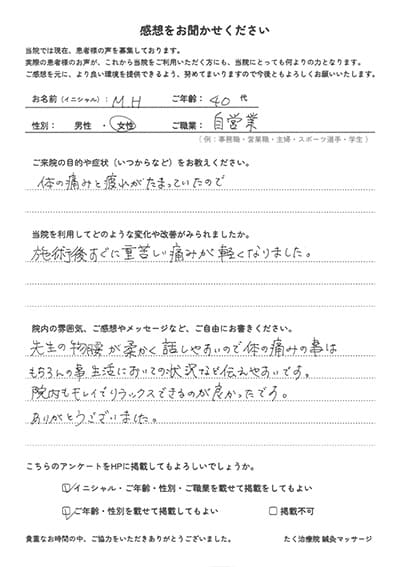 感想をお聞かせください
当院では現在、患者様の声を募集しております。
実際の患者様のお声が、これから当院をご利用いただく方にも、当院にとっても何よりの力となります。
ご感想を元に、より良い環境を提供できるよう、努めてまいりますので今後ともよろしくお願いいたします。
お名前(イニシャル): MH ご年齢: 40 代
性別: 男性 ・ 女性 ご職業: 自営業
(例:事務職・営業職・主婦・スポーツ選手・学生)
ご来院の目的や症状(いつからなど)をお教えください。
体の痛みと疲れがたまっていたので
当院を利用してどのような変化や改善がみられましたか。
施術後すぐに重苦しい痛みが軽くなりました。
院内の雰囲気、ご感想やメッセージなど、ご自由にお書きください。
先生の物腰が柔かく話しやすいので体の痛みの事は
もちろんの事生活においての状況など伝えやすいです。
院内もキレイでリラックスできるのが良かったです。
ありがとうございました。
こちらのアンケートをHPに掲載してもよろしいでしょうか。
イニシャル・ご年齢・性別・ご職業を載せて掲載をしてもよい
ご年齢・性別を載せて掲載してもよい 掲載不可
貴重なお時間の中、ご協力をいただきありがとうございました。 たく治療院 鍼灸マッサージ